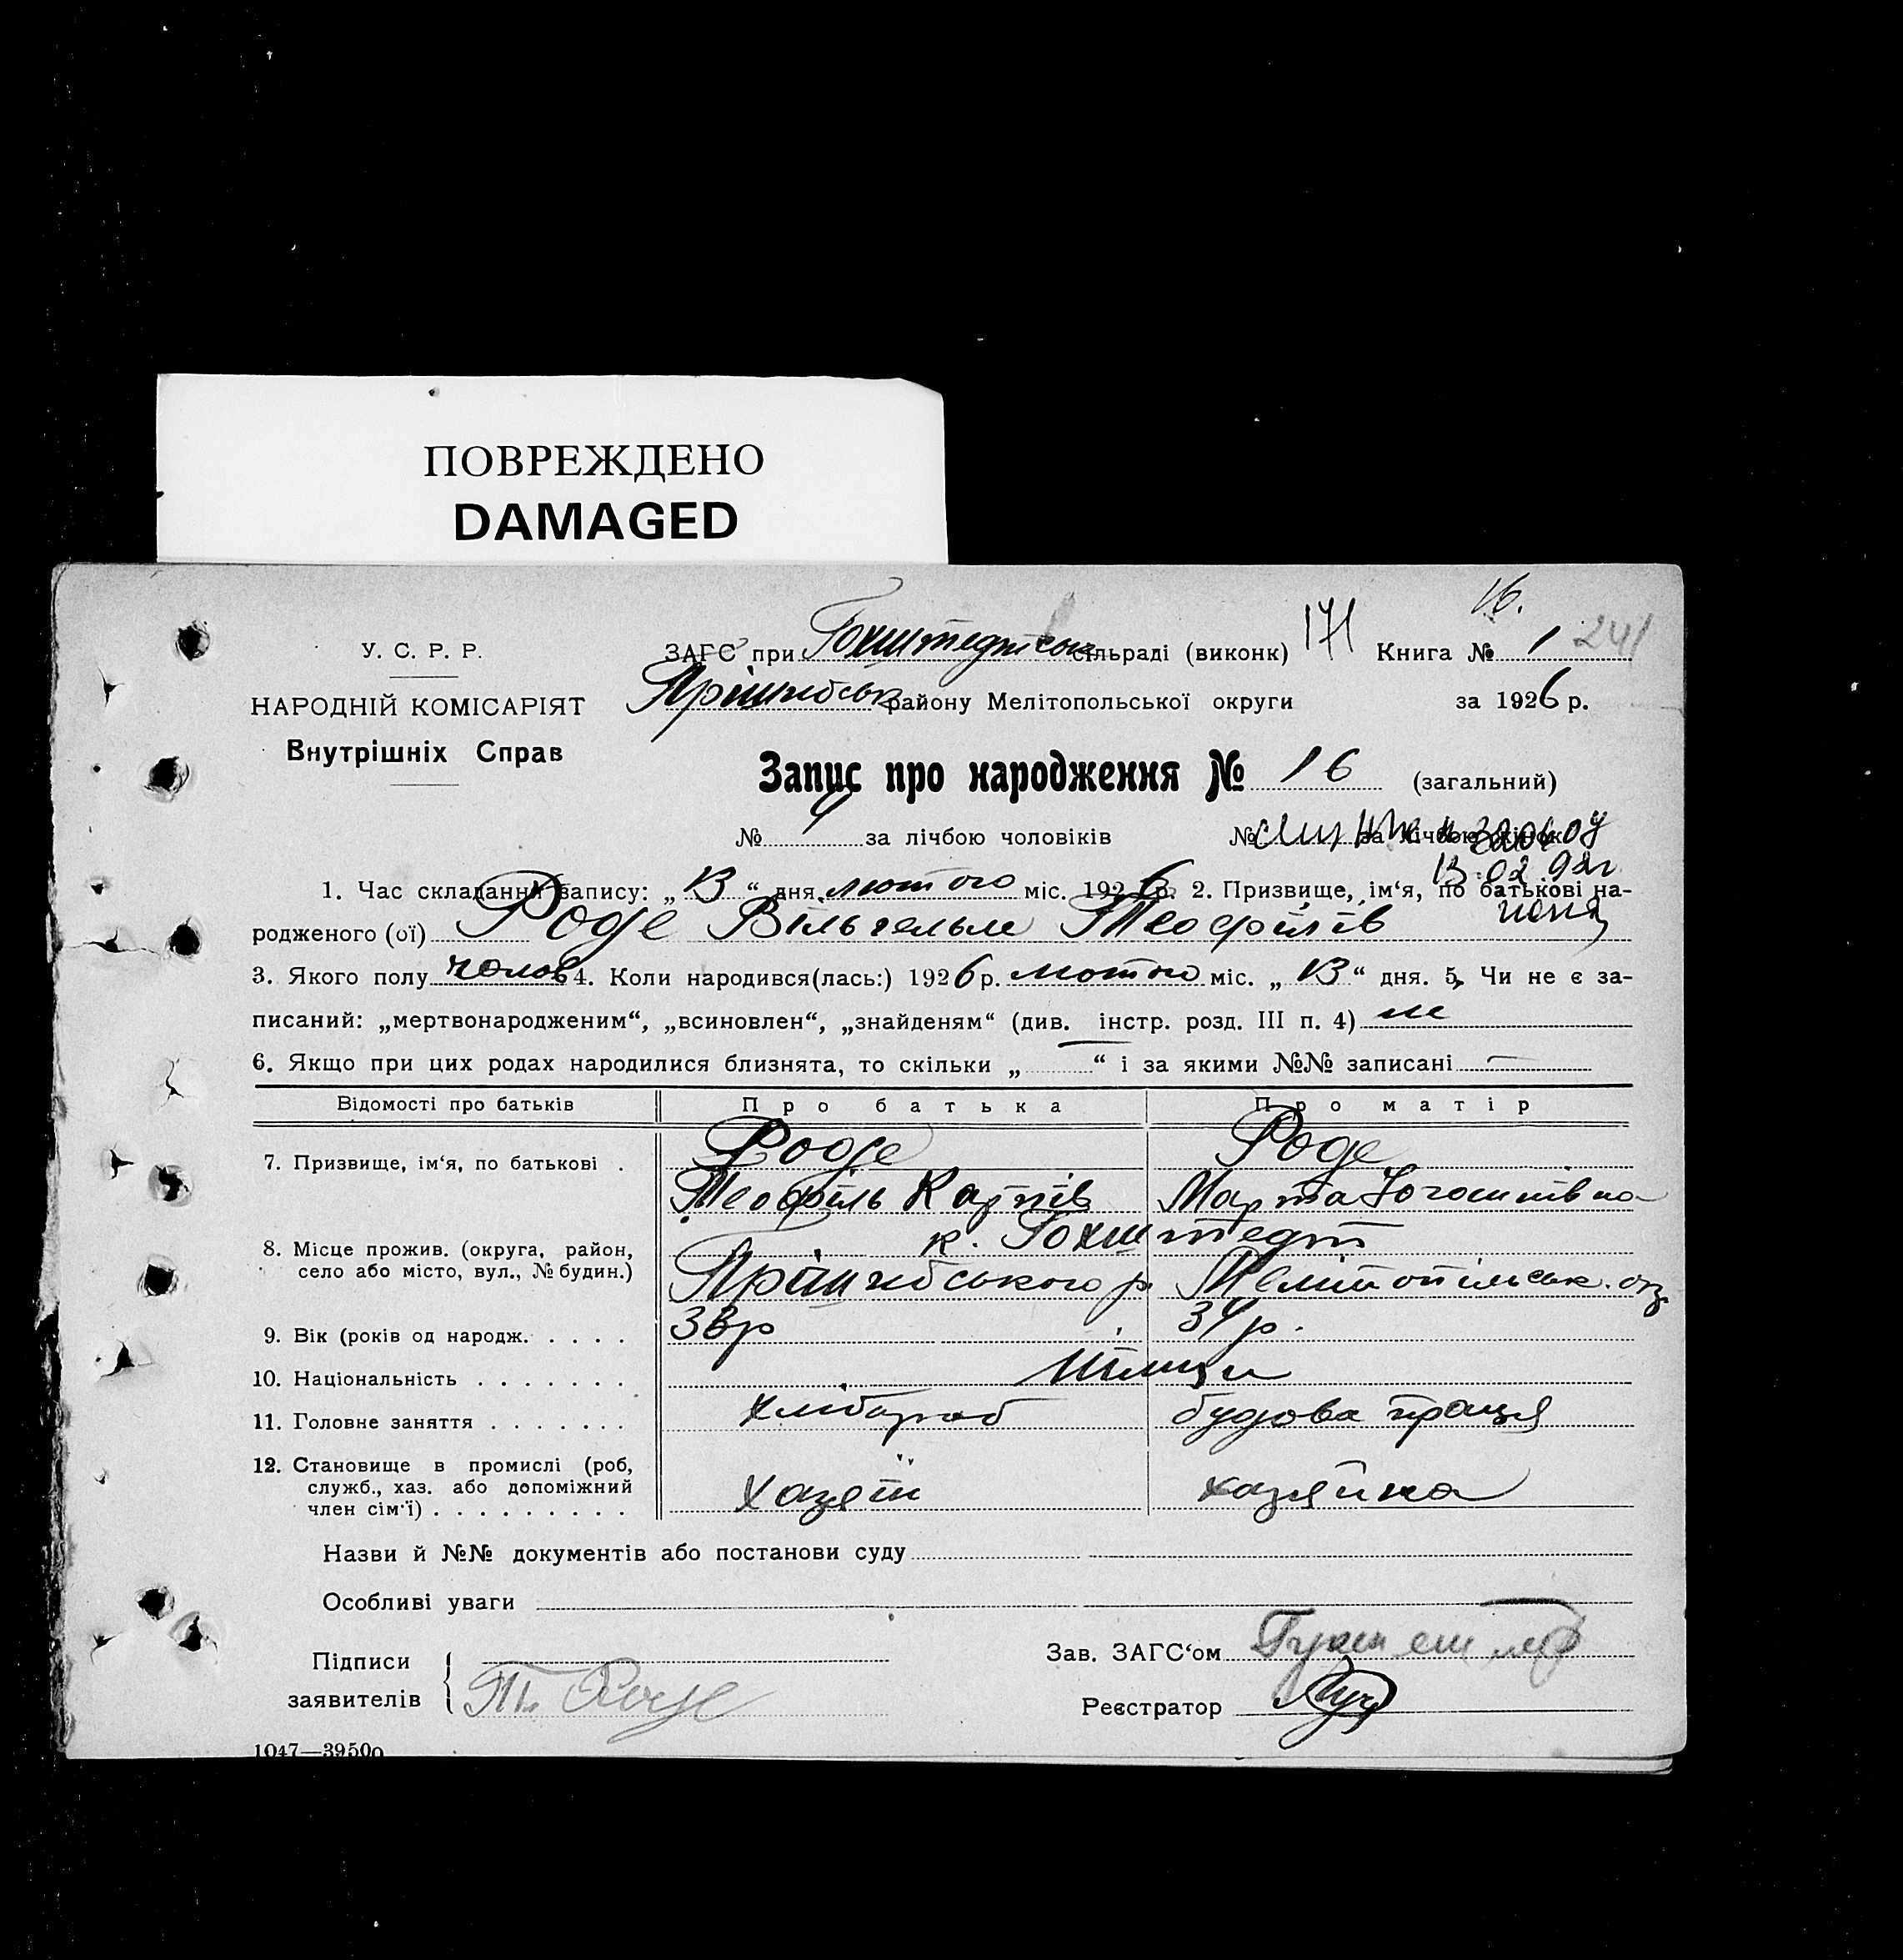 ПОВРЕЖДЕНО
DAMAGED
16.
У. С. Р. Р.
НАРОДНІЙ КОМІСАРІЯТ
Внутрішніх Справ
ЗАГС при Гохштедтськ сільраді (виконк) 171 Книга № 1 241
Прішибськ району Мелітопольської округи за 1926 р.
Запис про народження № 16 (загальний)
№ 4 за лічбою чоловіків № за лічбою жінок
13.02.92г
1. Час складання запису: „13“ дня лютого міс. 1926 р. 2. Призвище, ім‘я, по батькові на-
родженого (ої) Роде Вільгельм Теофілів
3. Якого полу чолов 4. Коли народився(лась:) 1926 р. лютого міс. „13“ дня. 5. Чи не є за-
писаний: „мертвонародженим“, „всиновлен“, „знайденям“ (див. інстр. розд. III п. 4) не
6. Якщо при цих родах народилися близнята, то скільки „—“ і за якими №№ записані —
Відомості про батьків Про батька Про матір
7. Призвище, ім‘я, по батькові . Роде Роде
Теофіль Карлів Марта
8. Місце прожив. (округа, район, село або місто, вул., № будин.) к. Гохштедт
Прішибського р Мелітопільськ. окр.
9. Вік (років од народж. . . . . 33р 34р.
10. Національність . . . . . . . Німци
11. Головне заняття . . . . . . . Хлібороб будова праця
12. Становище в промислі (роб, служб., хаз. або допоміжний член сім‘ї) . . . . . . . . . Хазяїн хазяйка
Назви й №№ документів або постанови суду
Особливі уваги
Підписи заявителів Роде
Зав. ЗАГС‘ом
Реєстратор
1047—39500